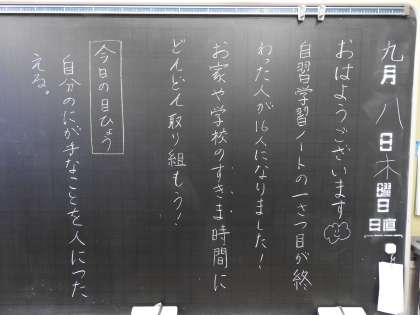 九月八日木曜日
日直
おはようございます
自習学習ノートの一さつ目が終
わった人が16人になりました！
お家や学校のすきま時間に
どんどん取り組もう！
今日の目ひょう
自分のにが手なことを人につた
える。